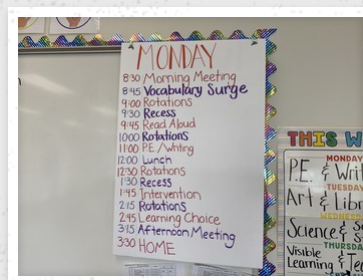 MONDAY
8:30 Morning Meeting
8:45 Vocabulary Surge
9:00 Rotations
9:30 Recess
9:45 Read Aloud
10:00 Rotations
11:00 PE/Writing
12:00 Lunch
12:30 Rotations
1:30 Recess
1:45 Intervention
2:15 Rotations
2:45 Learning Choice
3:15 Afternoon Meeting
3:30 HOME
THIS W
MONDAY
P.E. & Writ
TUESDAY
Art & Libr
WEDNESDAY
Science & S
THURSDAY
Visible
Learning & Te